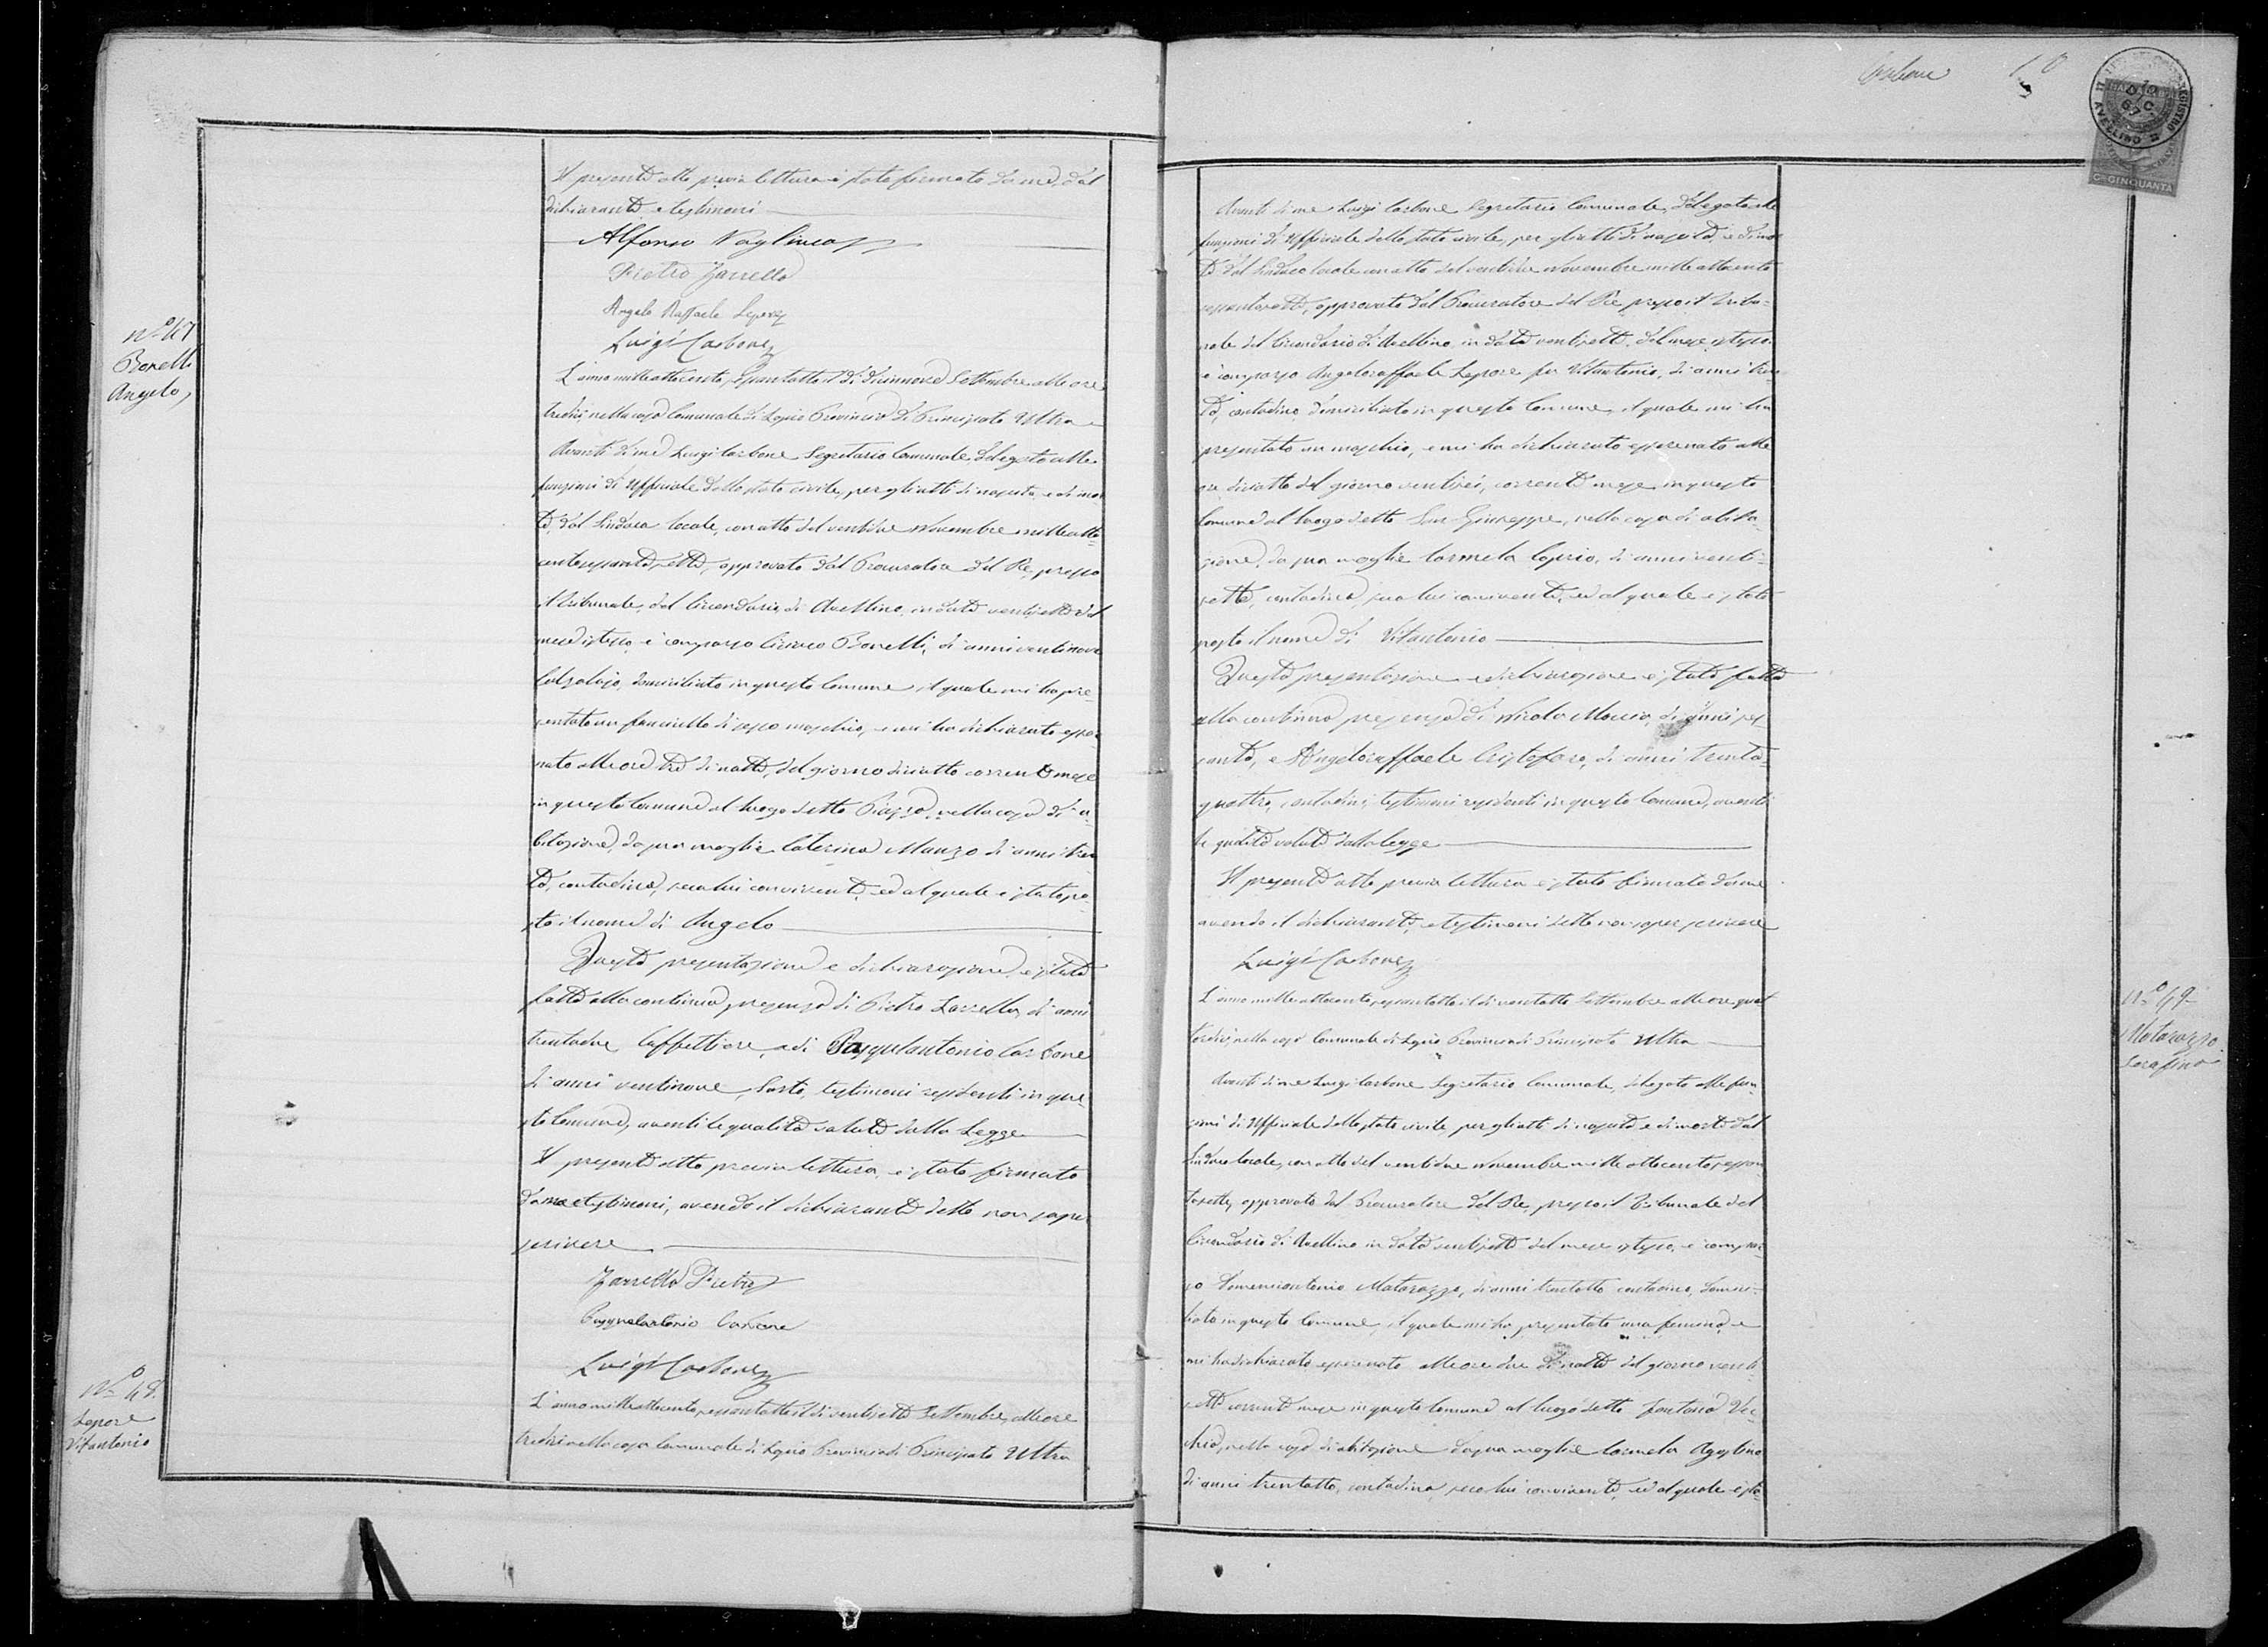 Il presente atto previa lettura è stato firmato da me, dal
dichiarante, e testimoni
Alfonso
Pietro Jarrella
Angelo Raffaele Lepore
Luigi Carbone
N.º 47
Bonelli
Angelo
L'anno milleottocento sessantotto il dì diciannove Settembre alle ore
tredici, nella casa Comunale di Lapio Provincia di Principato Ultra
Avanti di me Luigi Carbone Segretario Comunale, delegato alle
funzioni di Uffiziale dello stato civile, per gli atti di nascita, e di mor
te, dal Sindaco locale, con atto del ventidue Novembre mille otto
centosessantasette, approvato dal Procuratore del Re, presso
il tribunale, del Circondario di Avellino, in data ventisette del
mese istesso, è comparso Ciriaco Bonelli, di anni ventinove
Calzolajo, domiciliato in questo Comune il quale mi ha pre
sentato un fanciullo di sesso maschio, e mi ha dichiarato esser
nato alle ore tre di notte, del giorno diciotto corrente mese
in questo Comune al luogo detto Piazza, nella casa di a-
bitazione, da sua moglie Caterina Manzo di anni tren
ta, contadina, seco lui convivente, ed al quale è stato po-
sto il nome di Angelo
Questa presentazione e dichiarazione, è stata
fatta alla continua presenza di Pietro Jarrella, di anni
trentadue Caffettiere, e di Pasqualantonio Carbone
di anni ventinove, Sarto, testimoni residenti in que-
sto Comune, aventi le qualità volute dalla Legge
Il presente atto previa lettura, è stato firmato
da me e testimoni, avendo il dichiarante detto non saper
scrivere
Jarrella Pietro
Pasqualantonio Carbone
Luigi Carbone
N.º 48.
Lepore
Vitantonio
L'anno milleottocento sessantotto il dì ventisette Settembre, alle ore
tredici nella casa Comunale di Lapio Provincia di Principato Ultra
Carbone
AVELLINO
10
DIC
67
Cmi CINQUANTA
Avanti di me Luigi Carbone Segretario Comunale, delegato alle
funzioni di Uffiziale dello stato civile, per gli atti di nascita, e di mor
te dal Sindaco locale con atto del ventidue Novembre mille ottocento
sessantasette, approvato dal Procuratore del Re presso il tribu-
nale del Circondario di Avellino, in data ventisette, del mese istesso.
è comparso Angeloraffaele Lepore fu Vitantonio, di anni tren
ta, contadino, domiciliato in questo Comune, il quale mi ha
presentato un maschio, e mi ha dichiarato esser nato alle
ore diciotto del giorno ventisei, corrente mese in questo
Comune al luogo detto San Giuseppe, nella casa di abita-
zione, da sua moglie Carmela Caprio, di anni venti-
sette, contadina, seco lui convivente, ed al quale è stato
posto il nome di Vitantonio
Questa presentazione e dichiarazione è stata fatta
alla continua presenza di Nicola Moccia, di anni ses-
santa, e Angeloraffaele Cristofaro, di anni trenta-
quattro, contadini, testimoni residenti in questo Comune, aventi
le qualità volute dalla legge
Il presente atto previa lettura è stato firmato da me
avendo il dichiarante, e testimoni detto non saper scrivere
Luigi Carbone
N.º 49
Matarazzo
Serafina
L'anno mille ottocento sessantotto il dì ventotto Settembre alle ore quat
tordici, nella casa Comunale di Lapio Provincia di Principato Ultra
Avanti di me Luigi Carbone Segretario Comunale, delegato alle fun
zioni di Uffiziale dello stato civile per gli atti di nascita e di morte dal
Sindaco locale, con atto del ventidue Novembre mille ottocento sessan
tasette, approvato dal Procuratore del Re, presso il tribunale del
Circondario di Avellino in data ventisette del mese istesso, è compar-
so Domenicantonio Matarazzo, di anni trentotto contadino, domici-
liato in questo Comune, il quale mi ha presentato una femina, e
mi ha dichiarato esser nata alle ore due di notte del giorno venti
sette corrente mese in questo Comune al luogo detto fontana Vec-
chia, nella casa di abitazione da sua moglie Carmela Agostino
di anni trentotto, contadina, seco lui convivente, ed al quale è sta-